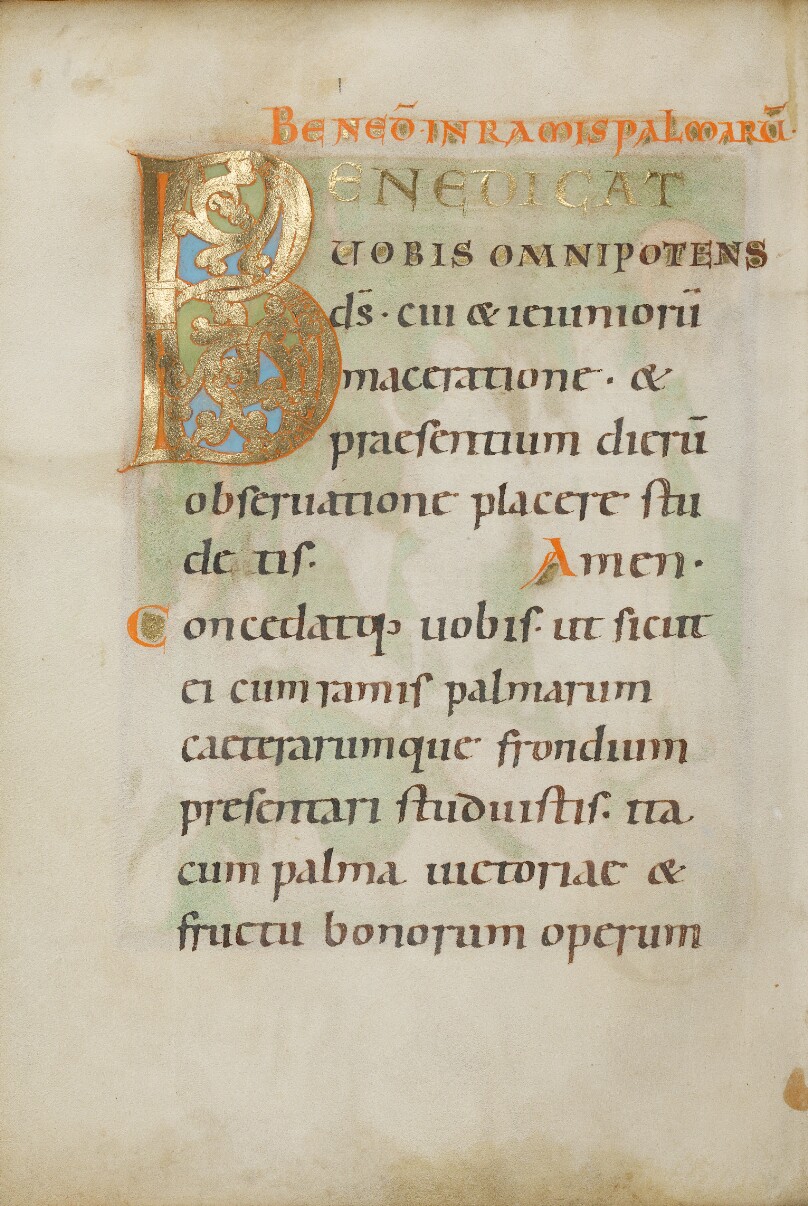 BENED̄·IN RAMIS PALMARŪ·
BENEDICAT
UOBIS OMNIPOTENS
d̄s · cui & ieiuniorū
maceratione · &
praesentium dierū
obseruatione placere stu
detis. Amen ·
Concedatq; uobis · ut sicut
ei cum ramis palmarum
caeterarumque frondium
presentari studuistis. ita
cum palma uictoriae &
fructu bonorum operum